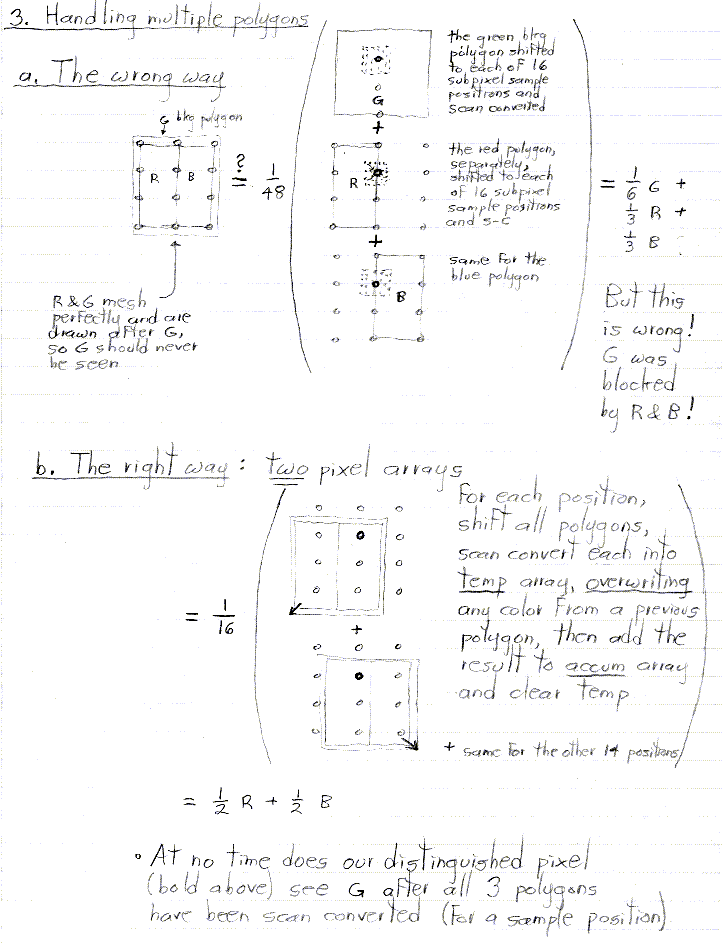 3. Handling multiple polygons
a. The wrong way
G bkg polygon
R B
? = 1/48
the green bkg
polygon shifted
to each of 16
subpixel sample
positions and
scan converted
G
+
the red polygon,
separately,
shifted to each
of 16 subpixel
sample positions
and s-c
R
+
same for the
blue polygon
B
= 1/6 G +
1/3 R +
1/3 B
R & G mesh
perfectly and are
drawn after G,
so G should never
be seen
But this
is wrong!
G was
blocked
by R & B!
b. The right way: two pixel arrays
= 1/16
+
For each position,
shift all polygons,
scan convert each into
temp array, overwriting
any color from a previous
polygon, then add the
result to accum array
and clear temp
+ same for the other 14 positions
= 1/2 R + 1/2 B
• At no time does our distinguished pixel
(bold above) see G after all 3 polygons
have been scan converted (for a sample position)